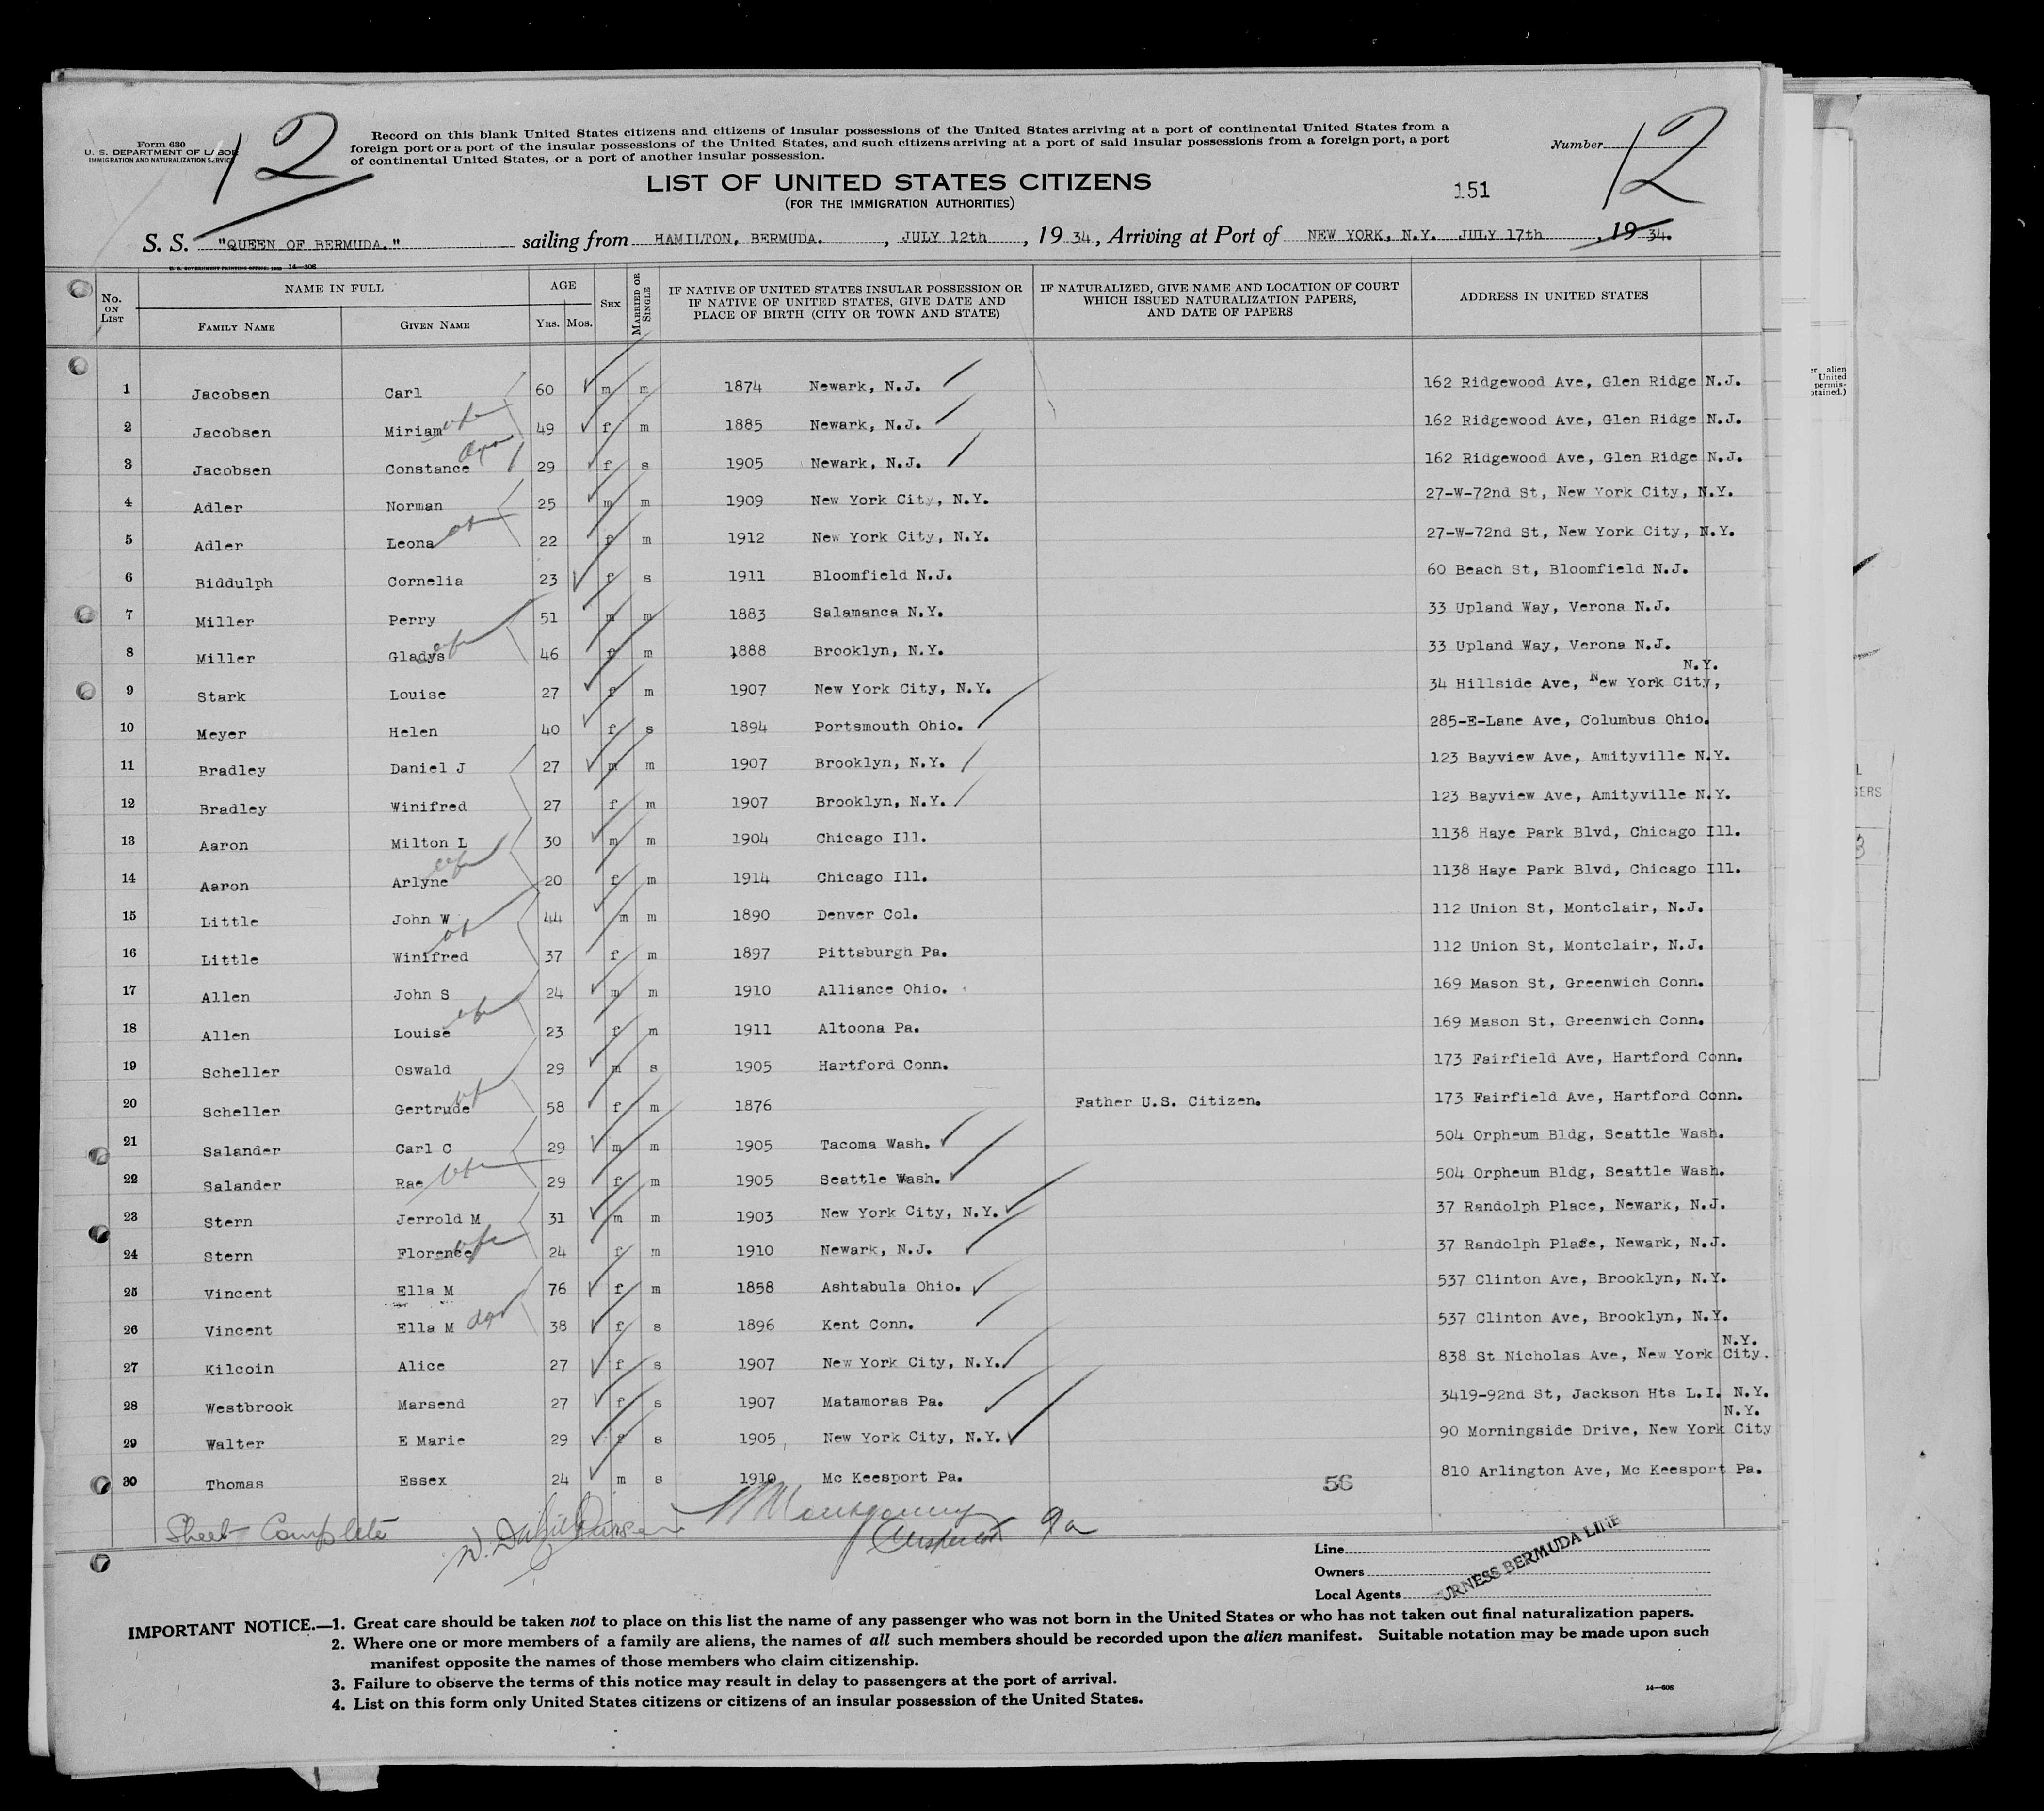 Form 630
U. S. DEPARTMENT OF LABOR
IMMIGRATION AND NATURALIZATION SERVICE
12
Record on this blank United States citizens and citizens of insular possessions of the United States arriving at a port of continental United States from a
foreign port or a port of the insular possessions of the United States, and such citizens arriving at a port of said insular possessions from a foreign port, a port
of continental United States, or a port of another insular possession.
Number 12
LIST OF UNITED STATES CITIZENS
(FOR THE IMMIGRATION AUTHORITIES)
151
S. S. "QUEEN OF BERMUDA." sailing from HAMILTON, BERMUDA. , JULY 12th , 19 34, Arriving at Port of NEW YORK, N.Y. JULY 17th , 19 34.
No. ON LIST NAME IN FULL FAMILY NAME GIVEN NAME AGE YRS. MOS. SEX MARRIED OR SINGLE IF NATIVE OF UNITED STATES INSULAR POSSESSION OR IF NATIVE OF UNITED STATES, GIVE DATE AND PLACE OF BIRTH (CITY OR TOWN AND STATE) IF NATURALIZED, GIVE NAME AND LOCATION OF COURT WHICH ISSUED NATURALIZATION PAPERS, AND DATE OF PAPERS ADDRESS IN UNITED STATES
1 Jacobsen Carl 60 m m 1874 Newark, N.J. 162 Ridgewood Ave, Glen Ridge N.J.
2 Jacobsen Miriam 49 f m 1885 Newark, N.J. 162 Ridgewood Ave, Glen Ridge N.J.
3 Jacobsen Constance 29 f s 1905 Newark, N.J. 162 Ridgewood Ave, Glen Ridge N.J.
4 Adler Norman 25 m m 1909 New York City, N.Y. 27-W-72nd St, New York City, N.Y.
5 Adler Leona 22 f m 1912 New York City, N.Y. 27-W-72nd St, New York City, N.Y.
6 Biddulph Cornelia 23 f s 1911 Bloomfield N.J. 60 Beach St, Bloomfield N.J.
7 Miller Perry 51 m m 1883 Salamanca N.Y. 33 Upland Way, Verona N.J.
8 Miller Gladys 46 f m 1888 Brooklyn, N.Y. 33 Upland Way, Verona N.J.
9 Stark Louise 27 f m 1907 New York City, N.Y. 34 Hillside Ave, New York City, N.Y.
10 Meyer Helen 40 f s 1894 Portsmouth Ohio. 285-E-Lane Ave, Columbus Ohio.
11 Bradley Daniel J 27 m m 1907 Brooklyn, N.Y. 123 Bayview Ave, Amityville N.Y.
12 Bradley Winifred 27 f m 1907 Brooklyn, N.Y. 123 Bayview Ave, Amityville N.Y.
13 Aaron Milton L 30 m m 1904 Chicago Ill. 1138 Haye Park Blvd, Chicago Ill.
14 Aaron Arlyne 20 f m 1914 Chicago Ill. 1138 Haye Park Blvd, Chicago Ill.
15 Little John W 44 m m 1890 Denver Col. 112 Union St, Montclair, N.J.
16 Little Winifred 37 f m 1897 Pittsburgh Pa. 112 Union St, Montclair, N.J.
17 Allen John S 24 m m 1910 Alliance Ohio. 169 Mason St, Greenwich Conn.
18 Allen Louise 23 f m 1911 Altoona Pa. 169 Mason St, Greenwich Conn.
19 Scheller Oswald 29 m s 1905 Hartford Conn. 173 Fairfield Ave, Hartford Conn.
20 Scheller Gertrude 58 f m 1876 Father U.S. Citizen. 173 Fairfield Ave, Hartford Conn.
21 Salander Carl C 29 m m 1905 Tacoma Wash. 504 Orpheum Bldg, Seattle Wash.
22 Salander Rae 29 f m 1905 Seattle Wash. 504 Orpheum Bldg, Seattle Wash.
23 Stern Jerrold M 31 m m 1903 New York City, N.Y. 37 Randolph Place, Newark, N.J.
24 Stern Florence 24 f m 1910 Newark, N.J. 37 Randolph Place, Newark, N.J.
25 Vincent Ella M 76 f m 1858 Ashtabula Ohio. 537 Clinton Ave, Brooklyn, N.Y.
26 Vincent Ella M 38 f s 1896 Kent Conn. 537 Clinton Ave, Brooklyn, N.Y.
27 Kilcoin Alice 27 f s 1907 New York City, N.Y. 838 St Nicholas Ave, New York City. N.Y.
28 Westbrook Marsend 27 f s 1907 Matamoras Pa. 3419-92nd St, Jackson Hts L.I. N.Y.
29 Walter E Marie 29 f s 1905 New York City, N.Y. 90 Morningside Drive, New York City N.Y.
30 Thomas Essex 24 m s 1910 Mc Keesport Pa. 810 Arlington Ave, Mc Keesport Pa.
56
Sheet Complete
Montgomery
Line
Owners
Local Agents
FURNESS BERMUDA LINE
IMPORTANT NOTICE.—1. Great care should be taken not to place on this list the name of any passenger who was not born in the United States or who has not taken out final naturalization papers.
2. Where one or more members of a family are aliens, the names of all such members should be recorded upon the alien manifest. Suitable notation may be made upon such
manifest opposite the names of those members who claim citizenship.
3. Failure to observe the terms of this notice may result in delay to passengers at the port of arrival.
4. List on this form only United States citizens or citizens of an insular possession of the United States.
14—608